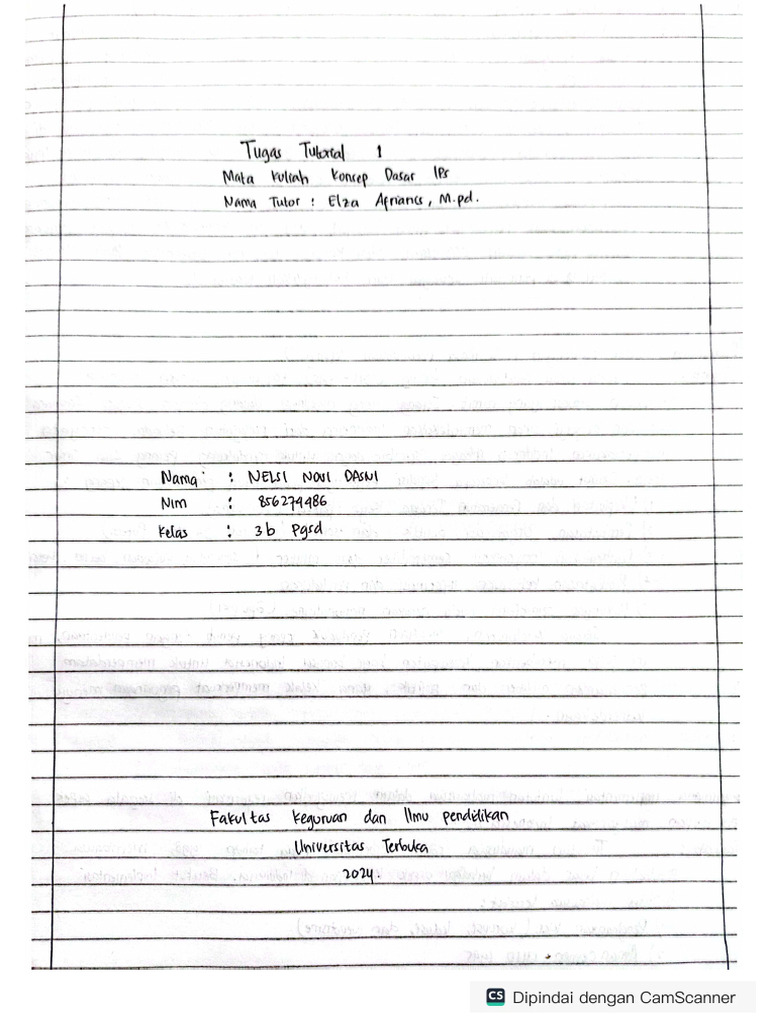 Tugas Tutorial 1
Mata Kuliah Konsep Dasar IPS
Nama Tutor : Elza Afrianis, M.pd.
Nama : NELSI NOVI DASNI
Nim : 856274486
Kelas : 3b Pgsd
Fakultas keguruan dan Ilmu pendidikan
Universitas Terbuka
2024.
CS Dipindai dengan CamScanner